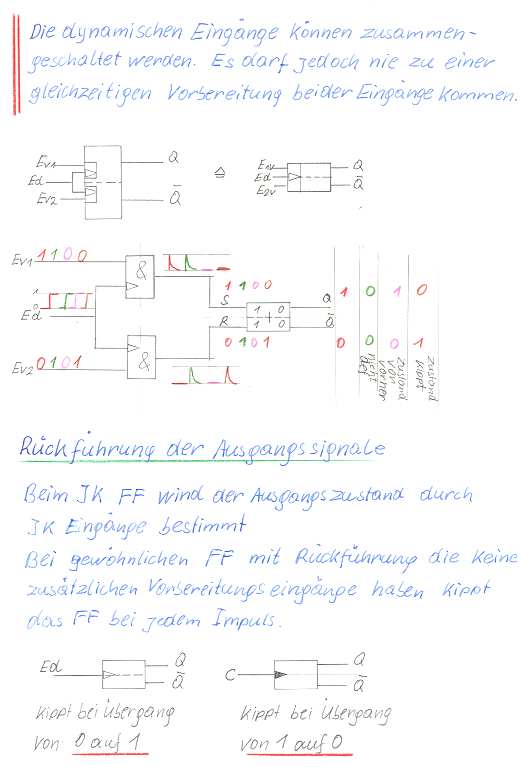 Die dynamischen Eingänge können zusammen-
geschaltet werden. Es darf jedoch nie zu einer
gleichzeitigen Vorbereitung beider Eingänge kommen.
Ev1 Q
Ed
Ev2 Q̄
≙
E1v Q
Ed Q̄
E2v
Ev1 1 1 0 0
&
1
0
Ed
1 1 0 0
S
R
1 0
1 0
0 1 0 1
Q
Q̄
1 0 1 0
0 0 0 1
Ev2 0 1 0 1
&
nicht def
Zustand von vorher
Zustand kippt
Rückführung der Ausgangssignale
Beim JK FF wird der Ausgangszustand durch
JK Eingänge bestimmt
Bei gewöhnlichen FF mit Rückführung die keine
zusätzlichen Vorbereitungseingänge haben kippt
das FF bei jedem Impuls.
Ed Q
Q̄
C Q
Q̄
kippt bei Übergang
von 0 auf 1
kippt bei Übergang
von 1 auf 0